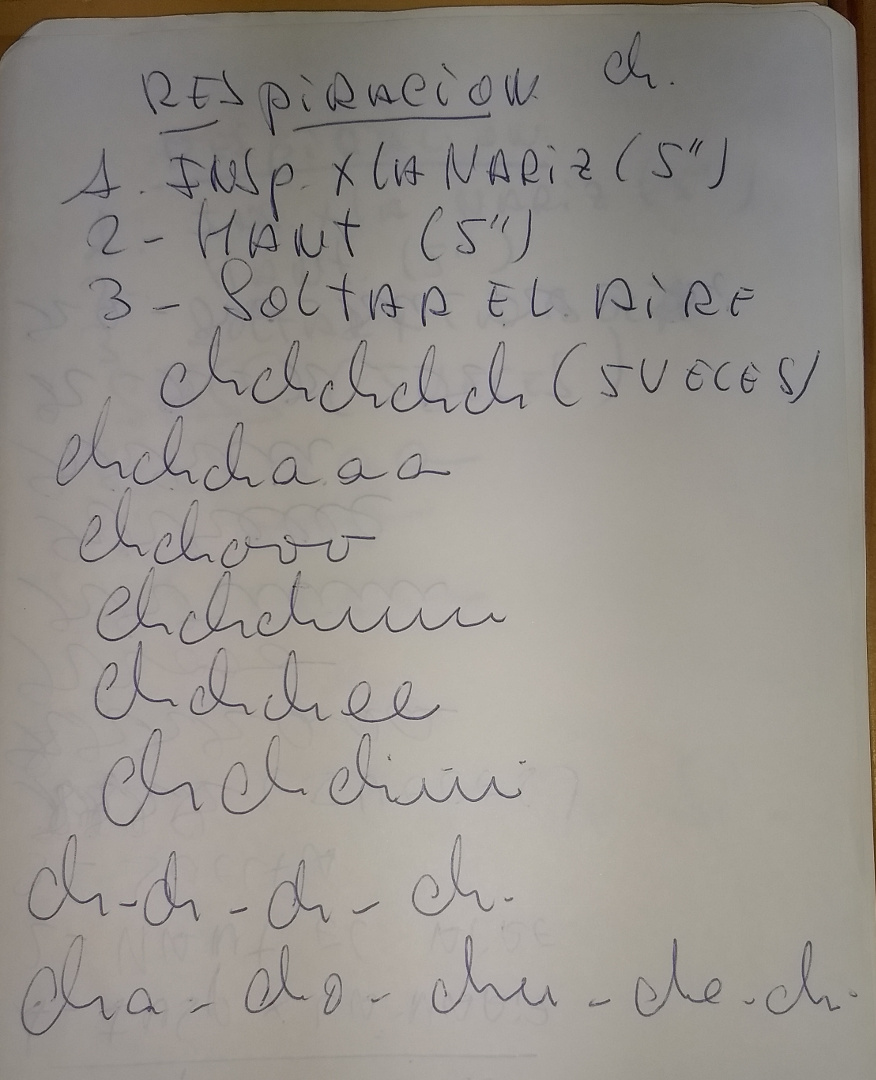 RESPIRACION ch.
1. INSP. X LA NARIZ (5")
2 - MANT (5")
3 - SOLTAR EL AIRE
chchchchch (5 VECES)
chchchaaa
chchooo
chchchuuu
chchchee
chchchiiii
ch - ch - ch - ch.
cha - cho - chu - che - ch.